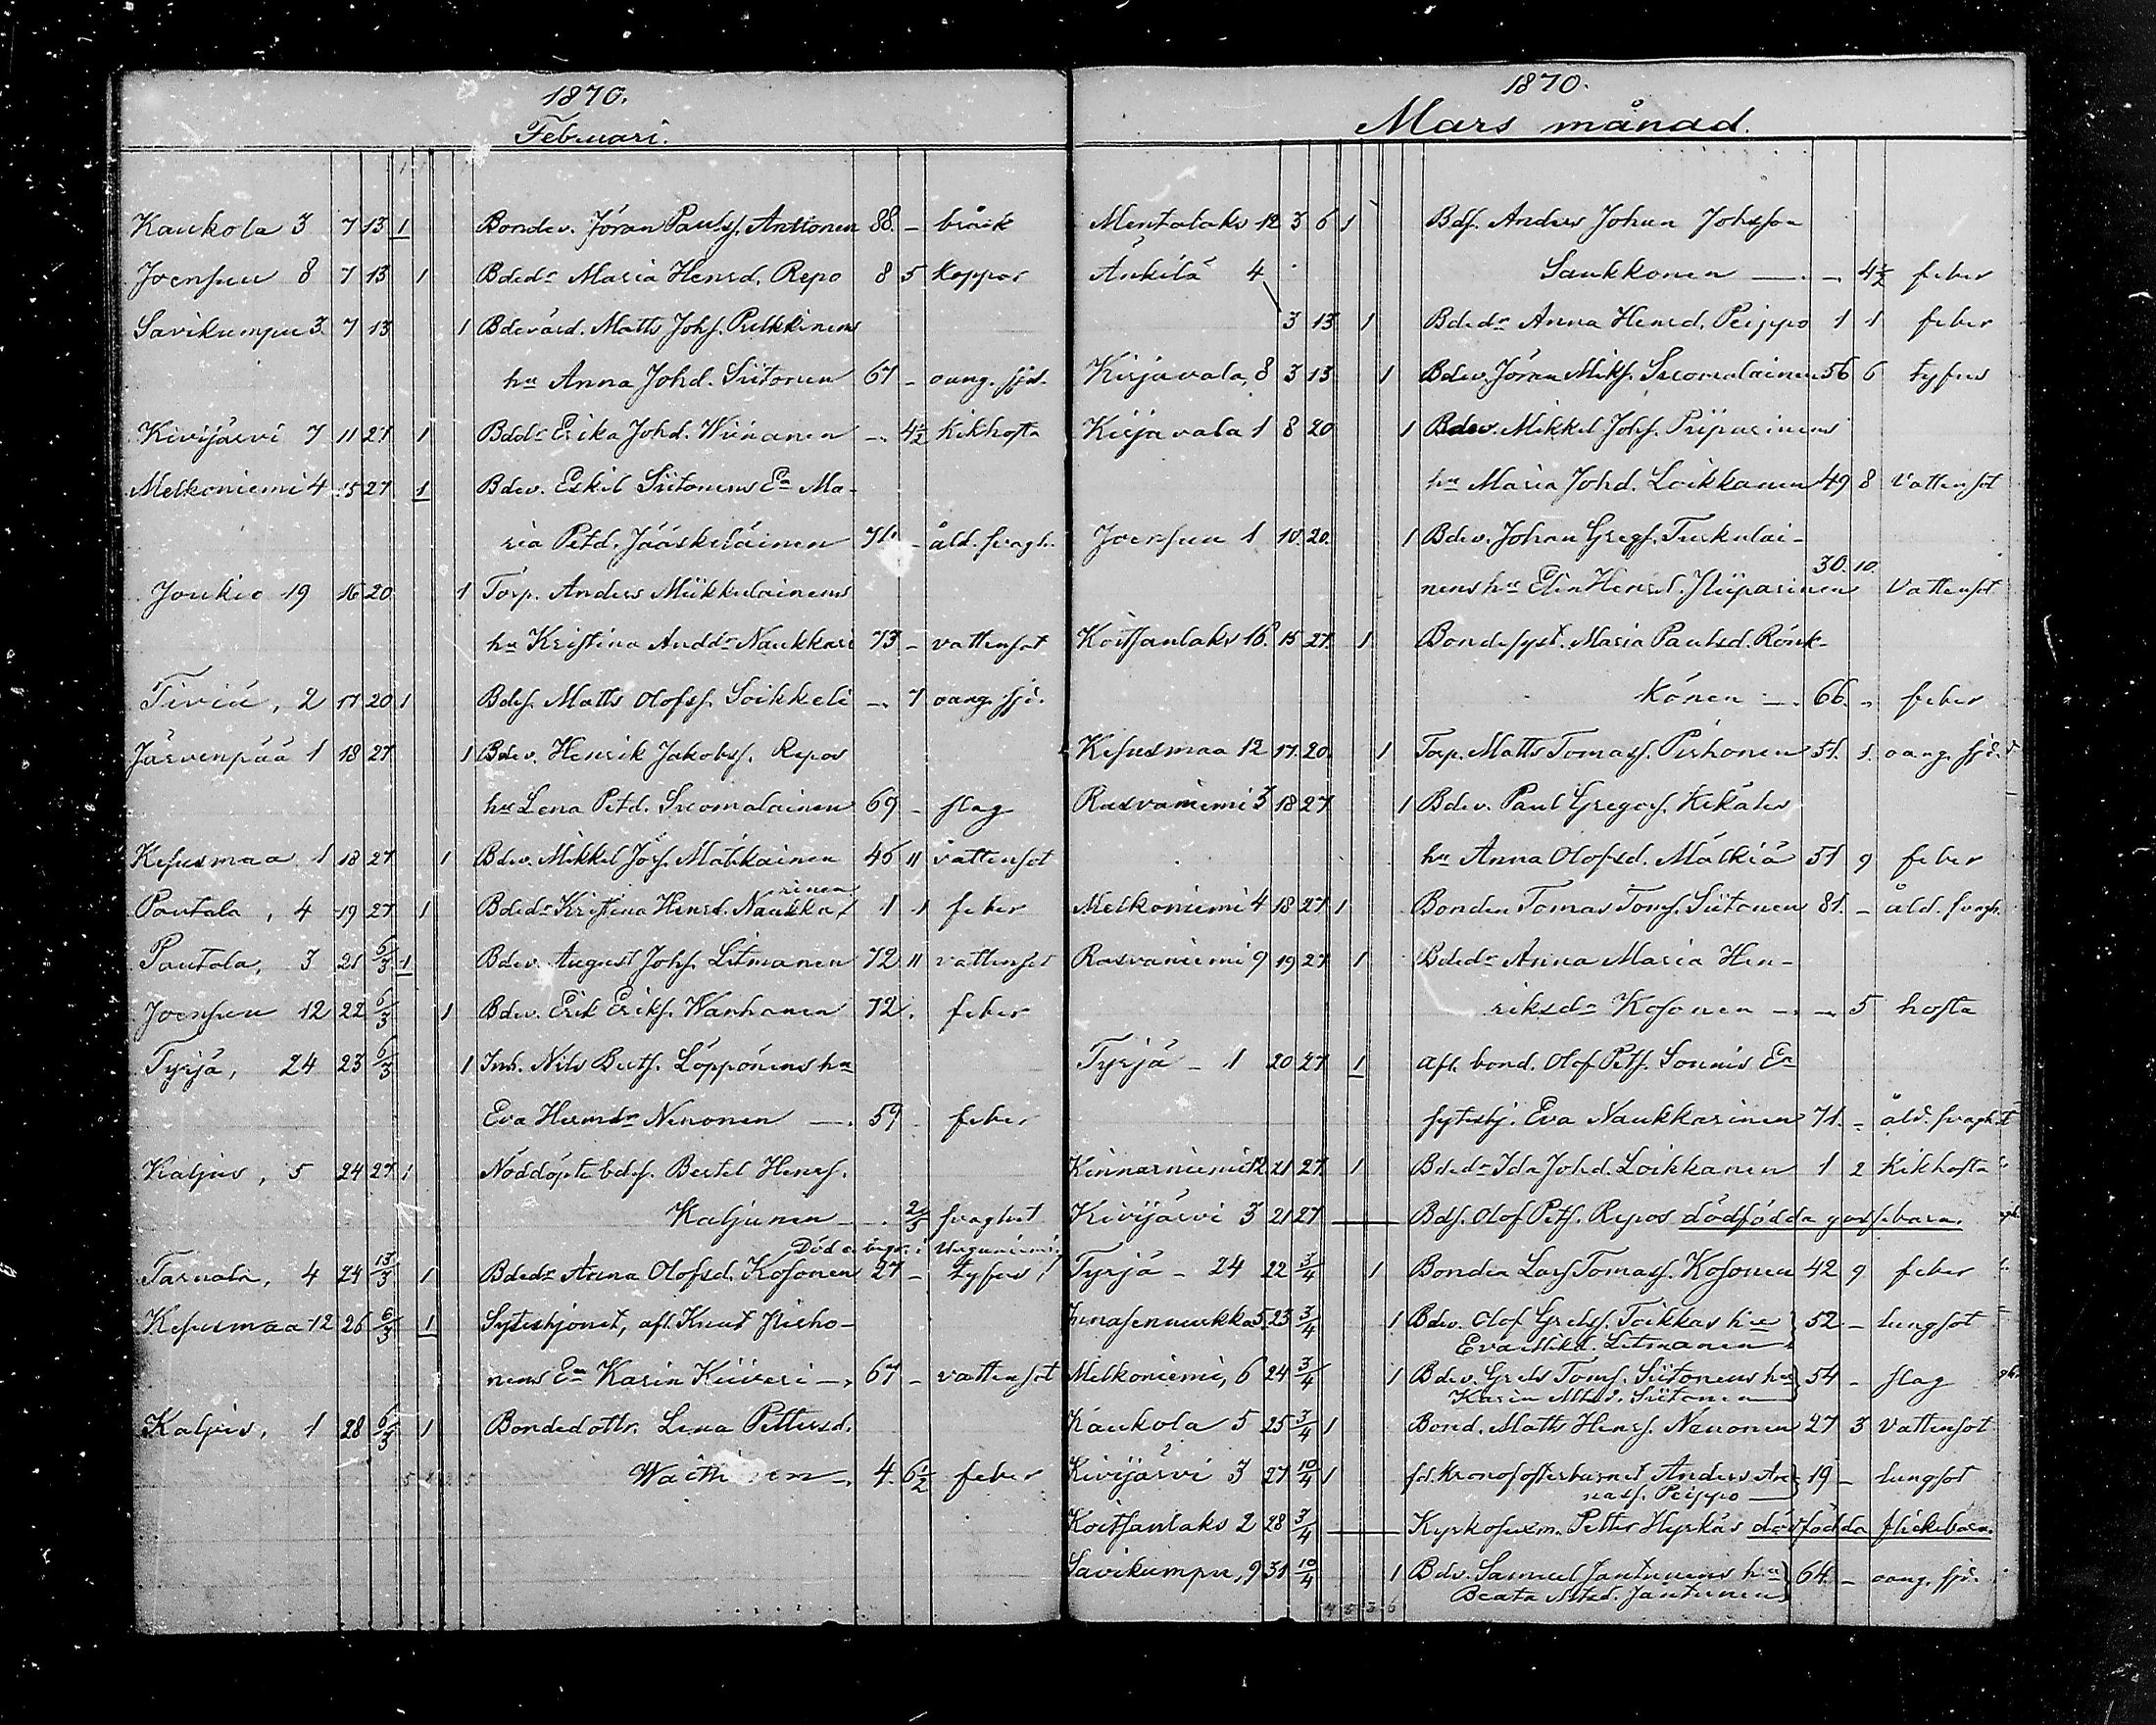 1870.
Februari.
Kaukola 3 7 13 1 Bondev. Jöran Paulsf. Anttonen 88. - bråck
Joensuu 8 7 13 1 Bdedr Maria Henrd. Repo 8 5 koppor
Savikumpu 3 7 13 1 Bdevärd. Matts Johsf. Pulkkinens
hu Anna Johd. Siitonen 67 - oang. sjd.
Kivijärvi 7 11 27 1 Bddr Erika Johd. Wiinanen - 4½ kikhosta
Melkoniemi 4 15 27 1 Bdev. Eskil Siitonens Ea Ma-
ria Petd. Jääskeläinen 71 - åld. svagh.
Joukio 19 16 20 1 Torp. Anders Miikkulainens
hu Kristina Anddr Naukkari 73 - vattensot
Tiviä, 2 17 20 1 Bdes. Matts Olofss. Soikkeli - 7 oang. sjd.
Järvenpää 1 18 27 1 Bdev. Henrik Jakobsf. Repos
hu Lena Petd. Suomalainen 69 - slag
Kesusmaa 1 18 27 1 Bdev. Mikkel Jörs. Matikainen 46 11 vattensot
Poutala, 4 19 27 1 Bdedr Kristina Henrd. Naukkarinen 1 1 feber
Poutala, 3 21 6/3 1 Bdev. August Johsf. Litmanen 72 11 vattensot
Joensuu 12 22 6/3 1 Bdev. Erik Eriksf. Wanhanen 72. feber
Tyrjä, 24 23 6/3 1 Inh. Nils Bertf. Löppönens hu
Eva Hermdr Nenonen - 59 - feber
Kaljus, 5 24 27 1 Nöddöpte bdes. Bertel Henrs.
Kaljunen - 2/3 svaghet
Död o. begr. i
Tarnala, 4 24 13/3 1 Bdedr Anna Olofsd. Kosonen 27 - tyfus
Kesusmaa 12 26 6/3 1 Syteshjonet, afl. Knut Hirho-
nens Ea Karin Kiiveri - 67 - vattensot
Kaljus, 1 28 6/3 1 Bondedottr. Lena Pettersd.
4. 6½ feber
1870.
Mars månad.
Mentalaks 12 3 6 1 Bds. Anders Johan Johsson
Änkilä 4 Saukkonen - - 4½ feber
3 13 1 Bdedr Anna Henrd. Peippo 1 1 feber
Kirjavala, 8 3 13 1 Bdev. Jöran Miks. Suomalainen 56 6 tyfus
Kirjavala 1 8 20 1 Bdev. Mikkel Johsf. Piiparinens
hu Maria Johd. Loikkanen 49 8 Vattensot
Joensuu 1 10. 20. 1 Bdev. Johan Gregs. Turkulai-
30. 10.
nens hu Elin Henrd. Piiparinen Vattensot
Koitsanlaks 16. 15 27. 1 Bondesyst. Maria Paulsd. Rönk-
könen - 66. - feber
Kesusmaa 12 17. 20. 1 Torp. Matts Tomass. Pirhonen 51. 1. oang. sjd.
Rasvaniemi 3 18 27 1 Bdev. Paul Gregorf. Kekäles
hu Anna Olofsd. Mälkiä 51 9 feber
Melkoniemi 4 18 27 1 Bonden Tomas Toms. Siitonen 81. - åld. svagh.
Rasvaniemi 9 19 27 1 Bdedr Anna Maria Hen-
riksdr Kosonen - - 5 hosta
Tyrjä - 1 20 27 1 Afl. bond. Olof Pets. Sonnis Ea
sytesh j. Eva Naukkarinen 71. - åld. svaghet
Kinnarniemi 12 21 27 1 Bdedr Ida Johd. Loikkanen 1 2 Kikhosta
Kivijärvi 3 21 27 Bds. Olof Pets. Repos dödfödda gossebarn.
Tyrjä - 24 22 3/4 1 Bonden Lars Tomass. Kosonen 42 9 feber
5. 23 3/4 1 Bdev. Olof Grelss. Toikkas hu 52 - lungsot
Eva Mikd. Litmanen
Melkoniemi, 6 24 3/4 1 Bdev. Grels Toms. Siitonens hu 54 - slag
Karin Mtsd. Siitonen
Kaukola 5 25 3/4 1 Bond. Matts Henrs. Nenonen 27 3 Vattensot
Kivijärvi 3 27 10/4 1 fd. kronofosterbarnet Anders An- 19 - lungsot
nass. Peippo
Koitsanlaks 2 28 3/4 Kyrkosexm. Petter Hyrkäs dödfödda flickebarn.
Savikumpu, 9 31 10/4 1 Bdv. Samuel Jantunens hu 64 - oang. sjd.
Beata Mtsd. Jantunen
4 5 3 6